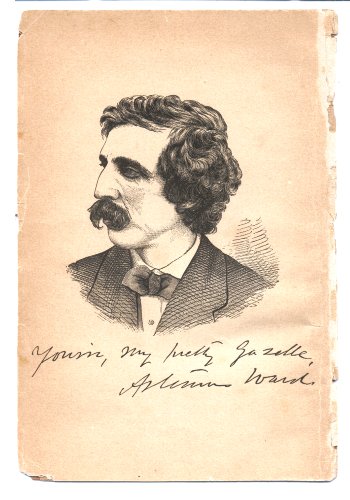 Yours, my pretty Gazelle,
Artemus Ward.